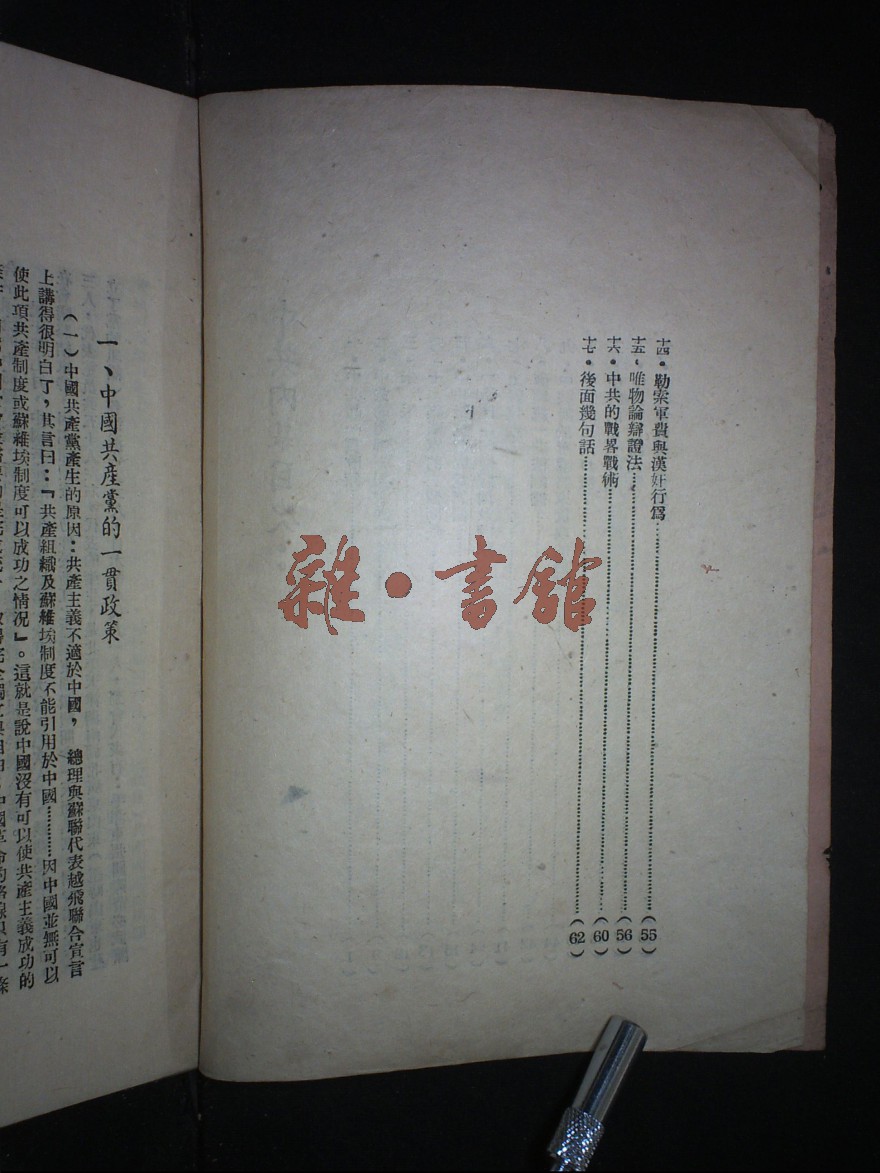 十四・勒索軍費與漢奸行爲………………(55)
十五・唯物論辯證法………………(56)
十六・中共的戰畧戰術………………(60)
十七・後面幾句話………………(62)
雜・書館
一、中國共産黨的一貫政策
(一)中國共產黨產生的原因：共產主義不適於中國，　總理與蘇聯代表越飛聯合宣言
上講得很明白了，其言曰：『共產組織及蘇維埃制度不能引用於中國………因中國並無可以
使此項共產制度或蘇維埃制度可以成功之情况』。這就是說中國沒有可以使共產主義成功的